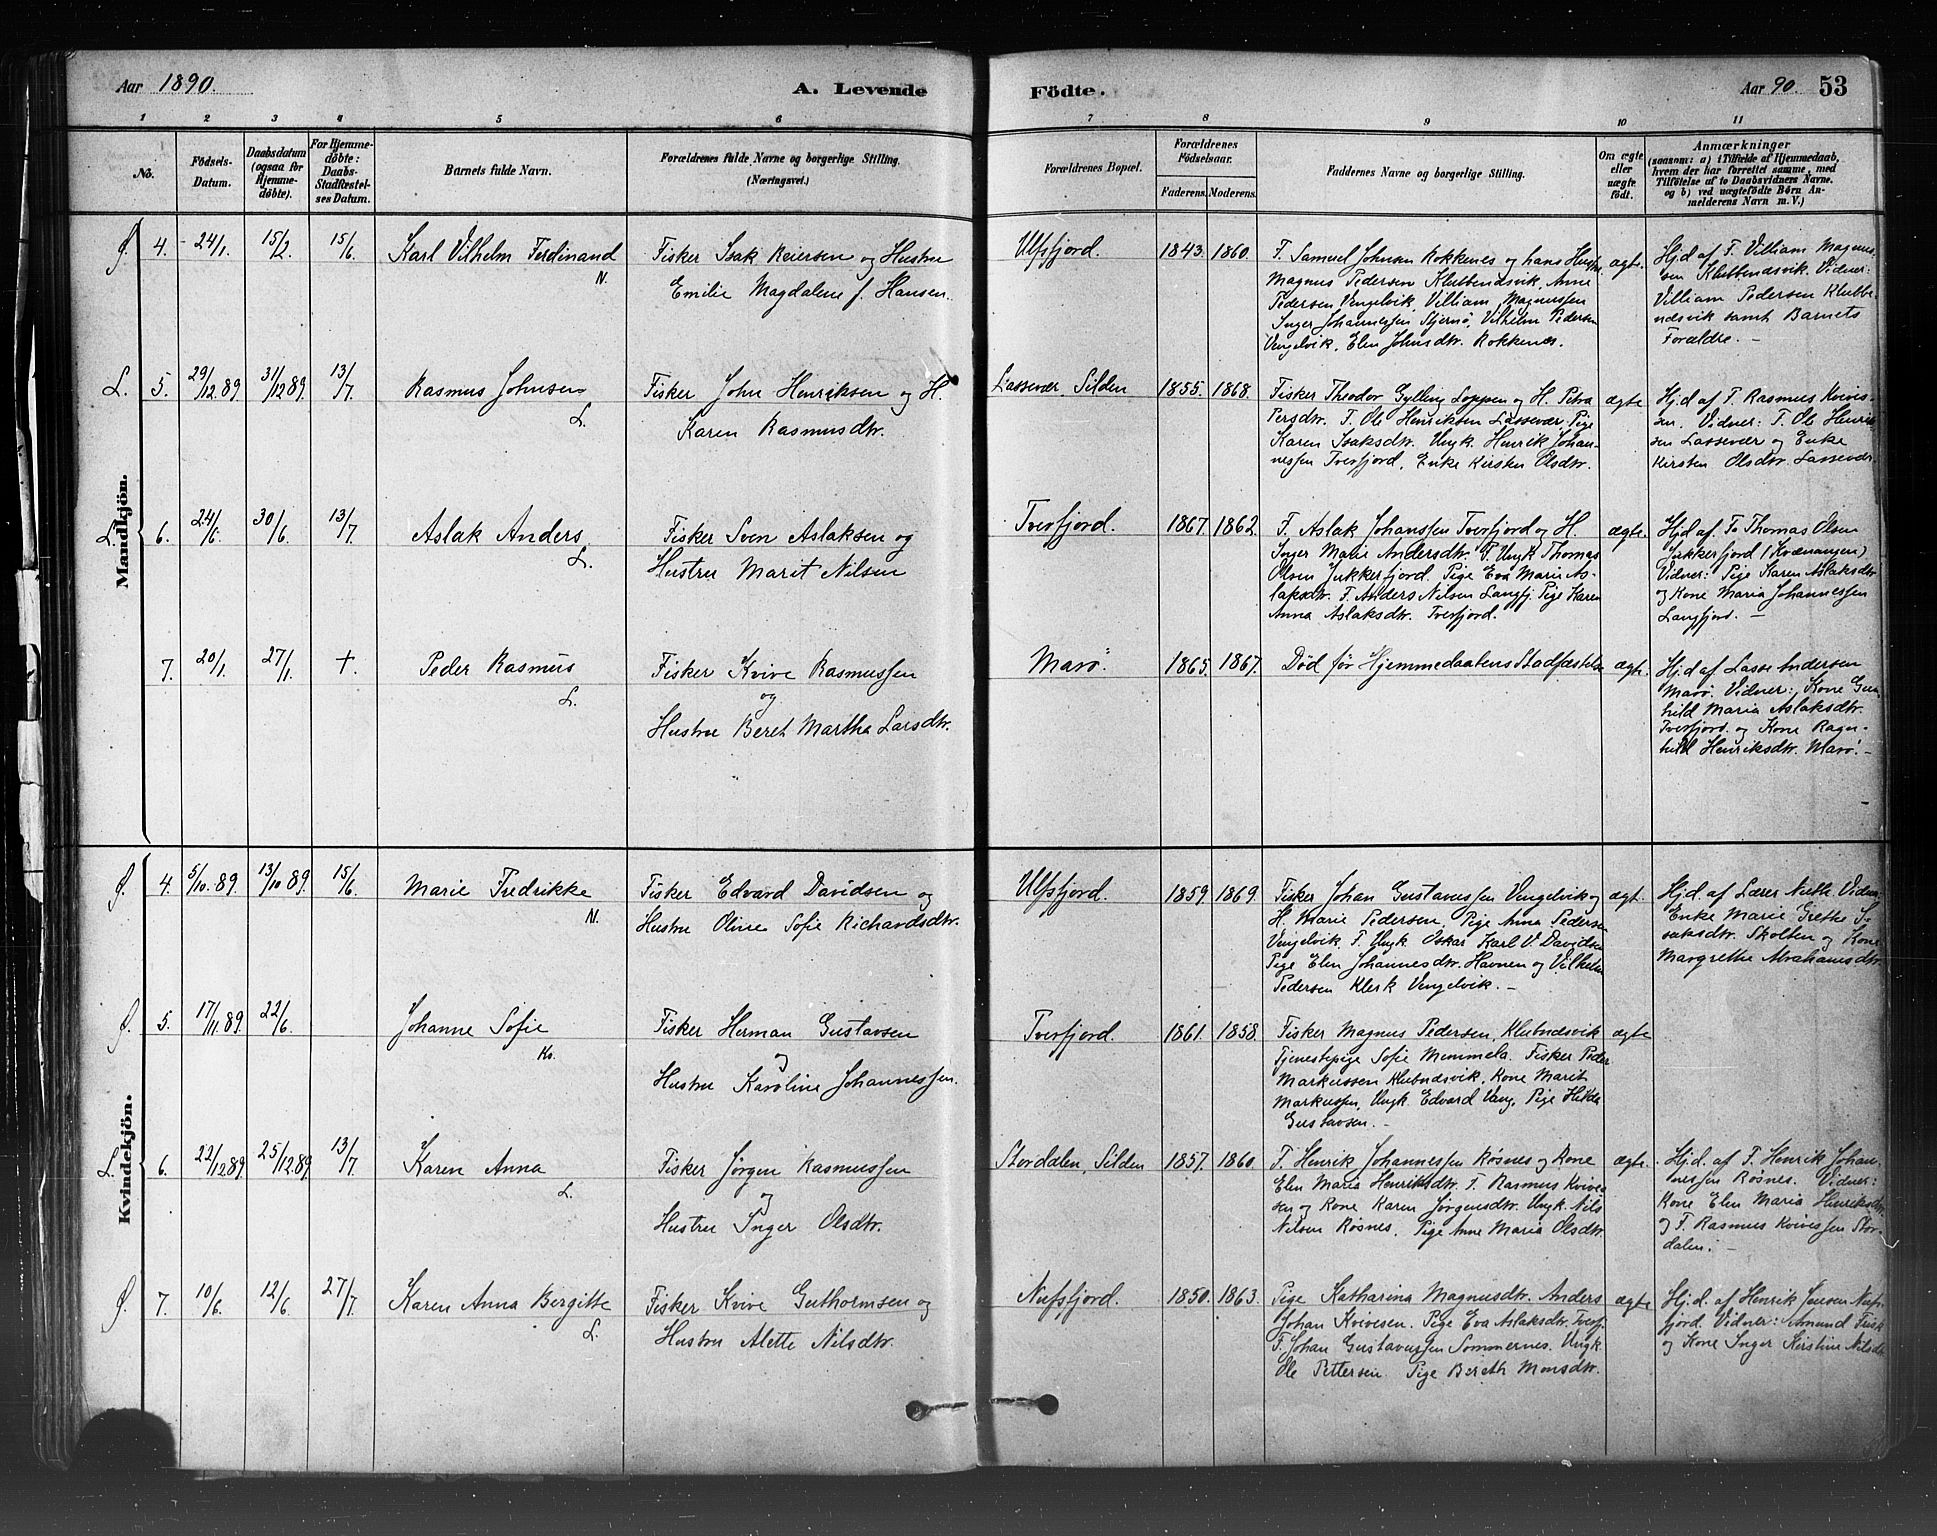 Aar 1890.
A. Levende
Födte.
Aar 90.
53
1 2 3 4 5 6 7 8 9 10 11
No.
Födsels-Datum.
Daabsdatum (ogsaa for Hjemmedöbte).
For Hjemmedöbte: Daabs-Stadfæstelses Datum.
Barnets fulde Navn.
Forældrenes fulde Navne og borgerlige Stilling.
(Næringsvei.)
Forældrenes Bopæl.
Forældrenes Födselsaar.
Faderens. Moderens.
Faddernes Navne og borgerlige Stilling.
Om ægte eller uægte födt.
Anmærkninger
(saasom: a) i Tilfælde af Hjemmedaab, hvem der har forrettet samme, med Tilföielse af to Daabsvidners Navne. og b) ved uægtefödte Börn Anmelderens Navn m.V.)
Mandkjön.
4. 24/1. 15/2. 15/6. Karl Vilhelm Ferdinand
N.
Fisker Isak Reiersen og Hustru
Emilie Magdalene f. Hansen.
Ulfsfjord. 1843. 1860.
F. Samuel Johnsen Rokkenes og hans Hustru
Magnus Pedersen Klubbendsvik, Anne
Pedersen Vengelvik, Villiam Magnussen
Inger Johannessen Stjernö, Vilhelm Pedersen
Vengelvik, Elen Johnsdtr. Rokkenæs.
ægte.
Hjd af F. Villiam Magnus-
sen Klubbendsvik. Vidner:
Villiam Pedersen Klubbe-
ndsvik samt Barnets
Forældre. –
L. 5. 29/12.89. 31/12 89. 13/7. Rasmus Johnsen
L.
Fisker John Henriksen og H.
Karen Rasmusdtr.
Lassevær, Silden 1855. 1868.
Fisker Theodor Gylling Loppen og H. Petra
Persdtr. F. Ole Henriksen Lassevær, Pige
Karen Isaksdtr. Ungk. Henrik Johan-
nessen Tverfjord, Enke Kirsten Olsdtr.
ægte
Hjd af F. Rasmus Kvives-
sen. Vidner: F. Ole Henrik-
sen Lassevær og Enke
Kirsten Olsdtr. Lassevær.
L. 6. 24/6. 30/6. 13/7. Aslak Anders
L.
Fisker Sven Aslaksen og
Hustru Marit Nilsen
Tverfjord. 1867. 1862.
F. Aslak Johanssen Tverfjord og H.
Inger Marie Andersdtr. F. Ungk Thomas
Olsen Jukkerfjord. Pige Eva Marie As-
laksdtr. F. Anders Nilsen Langfj. Pige Karen
Anna Aslaksdtr. Tverfjord.
ægte.
Hjd af. To Thomas Olsen
Jøkkerfjord (Kvænangen)
Vidner: Pige Karen Aslaksdtr
og Kone Maria Johannessen
Langfjord. –
7. 20/1. 27/1. +. Peder Rasmus
L.
Fisker Kvive Rasmussen
og
Hustru Beret Martha Larsdtr.
Marö. 1865. 1867.
Död før Hjemmedaabens Stadfæstelse
ægte.
Hjd af Lasse Andersen
Marö. Vidner: Kone Gun-
hild Maria Aslaksdtr.
Tverfjord. og Kone Ragn-
hild Henriksdtr. Marö. –
Kvindekjön.
4. 5/10.89. 13/10 89. 15/6. Marie Fredrikke
N.
Fisker Edvard Davidsen og
Hustru Oline Sofie Richardsdtr.
Ulfsfjord. 1859. 1869.
Fisker Johan Gustavussen Vengelvik og
H. Marie Pedersen, Pige Anna Pedersen
Vengelvik. F. Ungk Oskar Karl V. Davidsen
Pige Elen Johannesdtr. Havnen og Vilhelm
Pedersen Klerk Vengelvik. –
ægt.
Hjd. af Lærer Vidner
Enke Marie Grethe I-
saksdtr. Skolten og Kone
Margrethe Abrahamsdtr.
5. 17/11.89. 22/6. Johanne Sofie
Kv.
Fisker Herman Gustavsen
og
Hustru Karoline Johannessen.
Tverfjord. 1861. 1858.
Fisker Magnus Pedersen, Klubndsvik
Tjenestepige Sofie Memmela. Fisker Peder
Markussen Klubndsvik. Kone Marit
Markussen, Ungk. Edvard Vang, Pige Hilda
Gustavsen. –
ægte
L. 6. 22/12 89. 25/12.89. 13/7. Karen Anna
L.
Fisker Jørgen Rasmussen
og
Hustru Inger Olsdtr.
Stordalen, Silden 1857. 1860.
F. Henrik Johannessen Rösnes og Kone
Elen Maria Henriksdtr. F. Rasmus Kvive-
sen og Kone Karen Jørgensdtr. Ungk. Nils
Nilsen Rösnes. Pige Anne Maria Olsdtr.
ægte.
Hjd. af F. Henrik Johan-
nessen Rösnes. Vidner:
Kone Elen Maria Henriksdtr.
og F. Rasmus Kvivessen Stor-
dalen. –
7. 10/6. 12/6. 27/7. Karen Anna Bergitte
L.
Fisker Kvive Guthormsen og
Hustru Alette Nilsdtr.
Nufsfjord. 1850. 1863.
Pige Katharina Magnusdtr. Anders
Johan Kvivesen. Pige Eva Aslaksdtr. Tverfj.
F. Johan Gustavussen Sommernes. Ungk.
Ole Pettersen. Pige Bereth Monsdtr.
ægte
Hjd. af Henrik Jensen Nufs-
fjord. Vidner: Amund Frisk
og Kone Inger Kirstine Nilsdtr